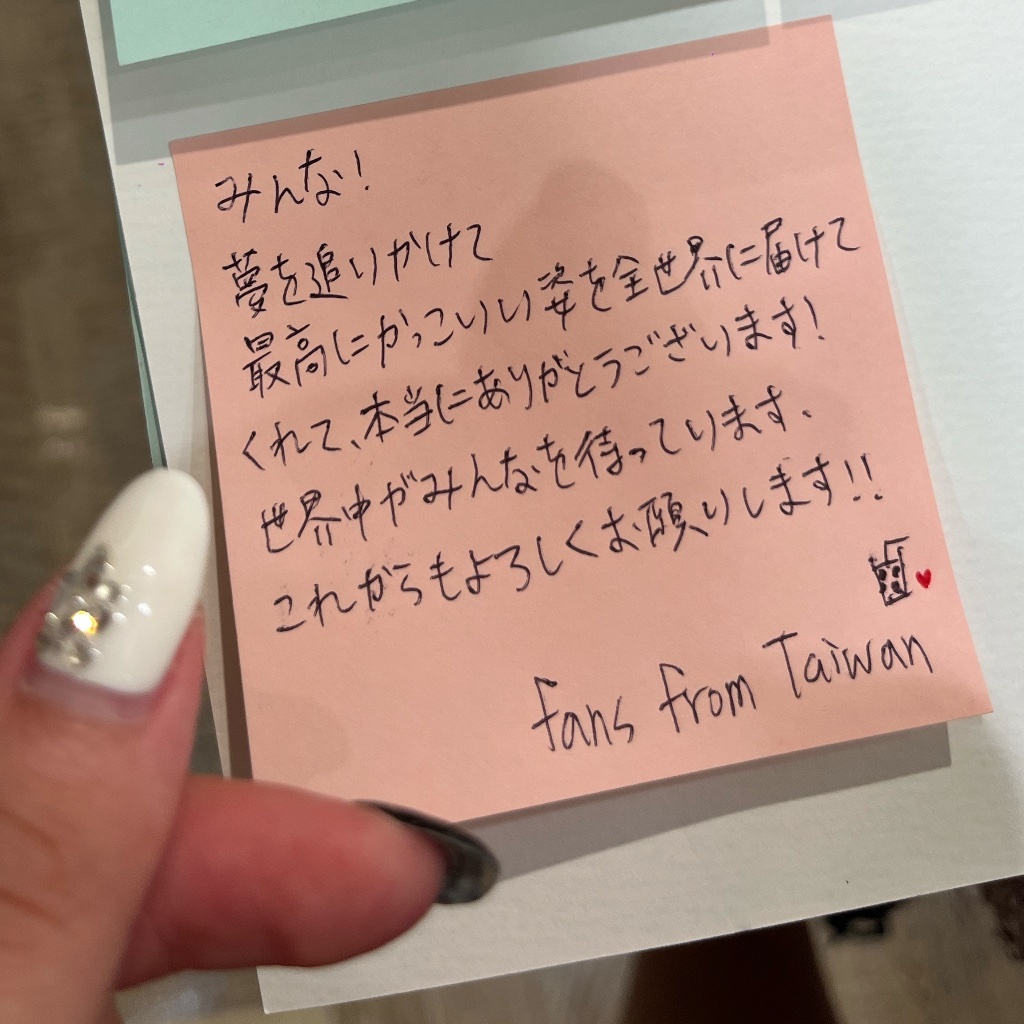 みんな!
夢を追いかけて
最高にかっこいい姿を全世界に届けて
くれて、本当にありがとうございます!
世界中がみんなを待っています、
これからもよろしくお願いします!!
fans from Taiwan